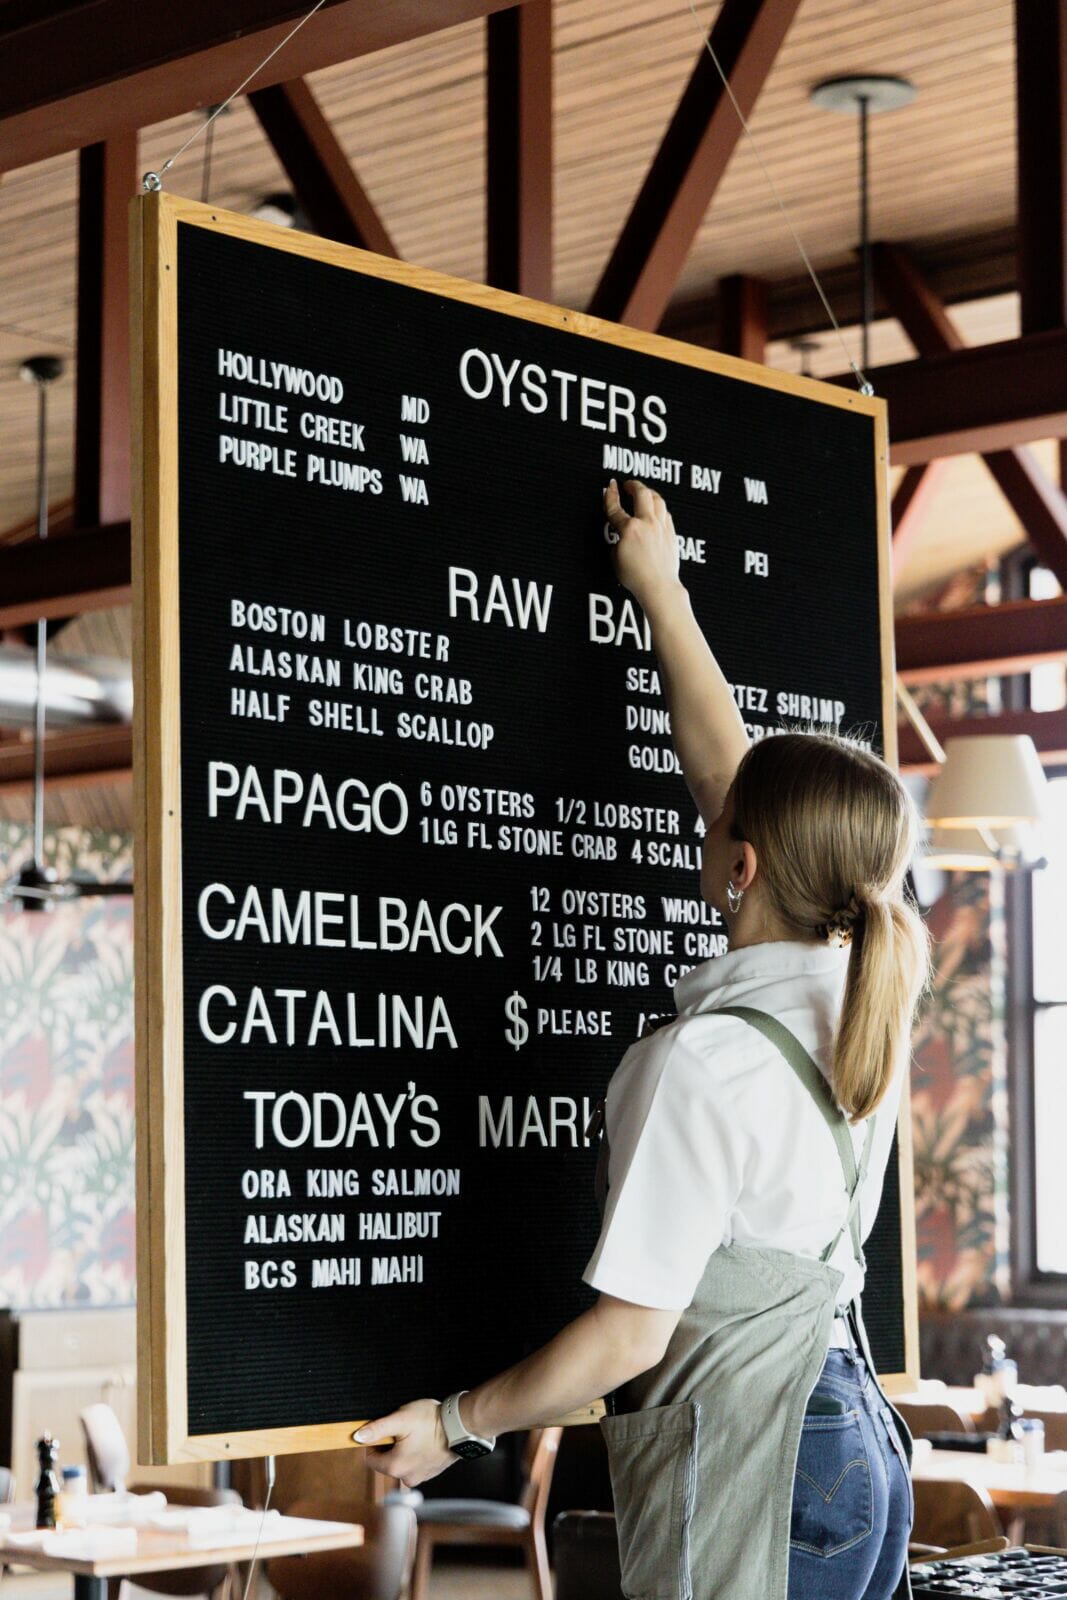 OYSTERS
HOLLYWOOD MD
LITTLE CREEK WA
PURPLE PLUMPS WA
MIDNIGHT BAY WA
PEI
RAW
BOSTON LOBSTER
ALASKAN KING CRAB
HALF SHELL SCALLOP
SEA SHRIMP
PAPAGO
6 OYSTERS 1/2 LOBSTER 4
1 LG FL STONE CRAB 4
CAMELBACK
12 OYSTERS WHOLE
2 LG FL STONE CRAB
1/4 LB KING
CATALINA
$ PLEASE
TODAY'S
ORA KING SALMON
ALASKAN HALIBUT
BCS MAHI MAHI